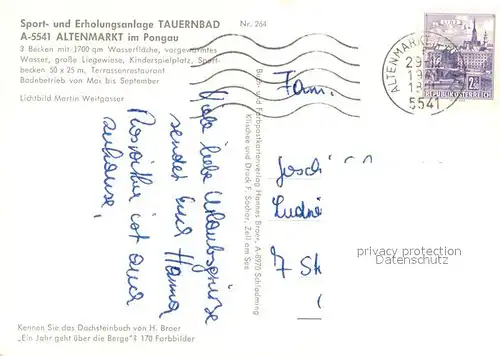 Sport- und Erholungsanlage TAUERNBAD
Nr. 264
A-5541 ALTENMARKT im Pongau
3 Becken mit 1700 qm Wasserfläche, vorgewärmtes
Wasser, große Liegewiese, Kinderspielplatz, Sport-
becken 50 x 25 m, Terrassenrestaurant
Badebetrieb von Mai bis September
Lichtbild Martin Weitgasser
Viele liebe Urlaubsgrüsse
sendet Euch Hanna
Roswitha ist auch
zuhause.
Buch- und Farbpostkartenverlag Hannes Broer, A-8970 Schladming
Klischee und Druck F. Sochor, Zell am See
ALTENMARKT
5541
REPUBLIK ÖSTERREICH
Fam.
7 St
privacy protection
Datenschutz
Kennen Sie das Dachsteinbuch von H. Broer
„Ein Jahr geht über die Berge"? 170 Farbbilder